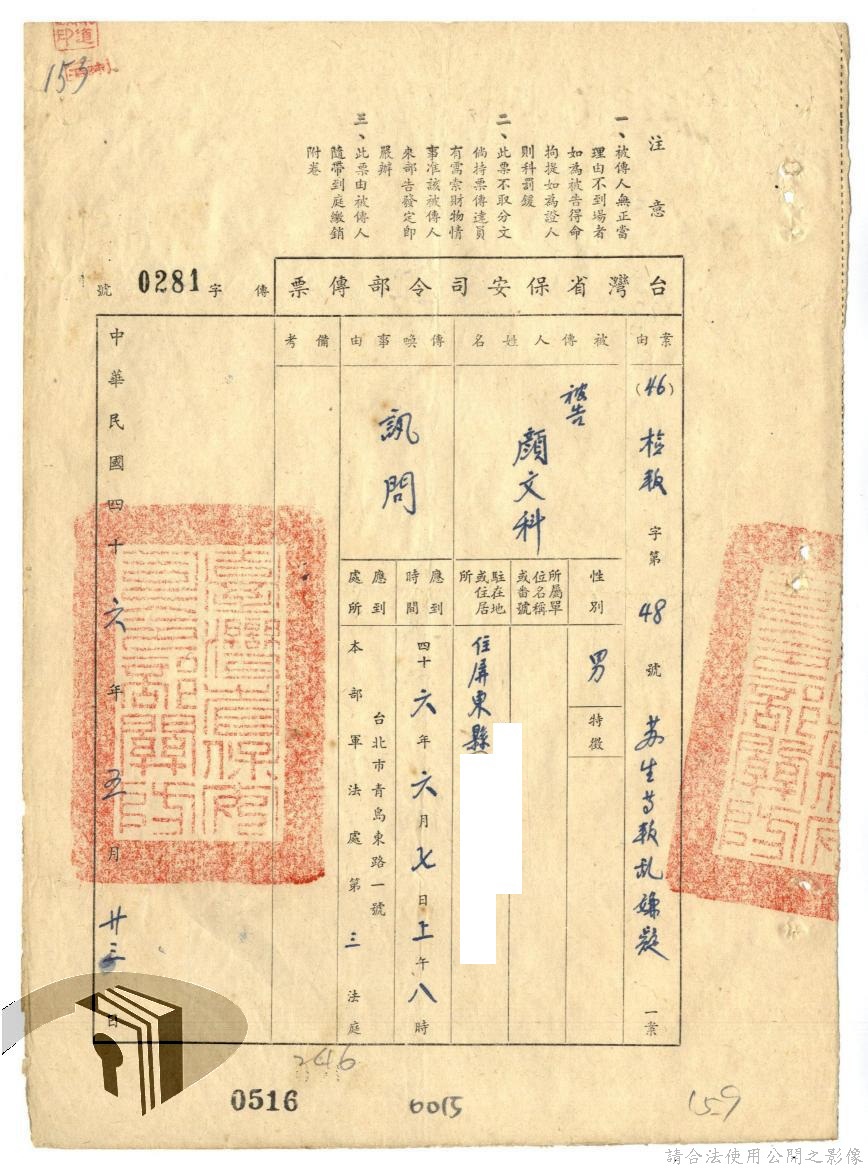 153
注意
一、被傳人無正當
理由不到場者
如為被告得命
拘提如為證人
則科罰鍰
二、此票不取分文
倘持票傳達員
有需索財物情
事准該被傳人
來部告發定即
嚴辦
三、此票由被傳人
隨帶到庭繳銷
附卷
台灣省保安司令部傳票
傳字0281號
案由
(46)檢叛字第48號 苏生等叛乱嫌疑一案
被傳人姓名
被告
顏文科
性別
男
特徵
所屬單
位名稱
或番號
駐在地
或住居
所
住屏東縣
傳喚事由
訊問
應到
時間
四十六年六月七日上午八時
應到
處所
台北市青島東路一號
本部軍法處第三法庭
備考
中華民國四十六年五月廿三日
臺灣省保安
司令部關防
246
0516
6015
159
請合法使用公開之影像